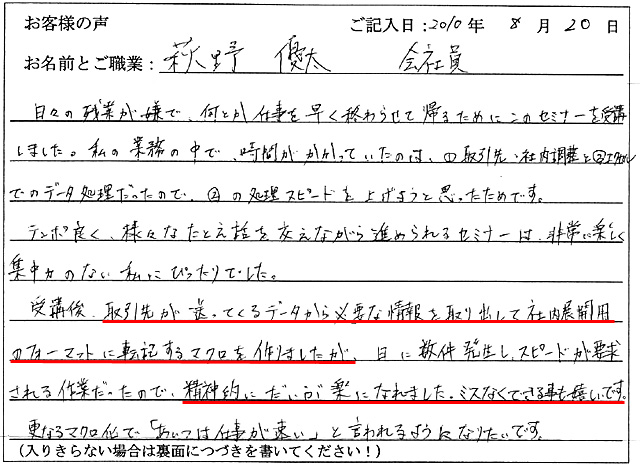 お客様の声　ご記入日：2010年 8月20日
お名前とご職業：萩野 優太 会社員
日々の残業が嫌で、何とか仕事を早く終わらせて帰るためにこのセミナーを受講
しました。私の業務の中で、時間がかかっていたのは、①取引先・社内調整と②エクセル
でのデータ処理だったので、②の処理スピードを上げようと思ったためです。
テンポ良く、様々なたとえ話を交えながら進められるセミナーは、非常に楽しく
集中力のない私にぴったりでした。
受講後、取引先が送ってくるデータから必要な情報を取り出して社内展開用
のフォーマットに転記するマクロを作りましたが、日に数件発生し、スピードが要求
される作業だったので、精神的にだいぶ楽になれました。ミスなくできる事も嬉しいです。
更なるマクロ化で「あいつは仕事が速い」と言われるようになりたいです。
（入りきらない場合は裏面につづきを書いてください！）